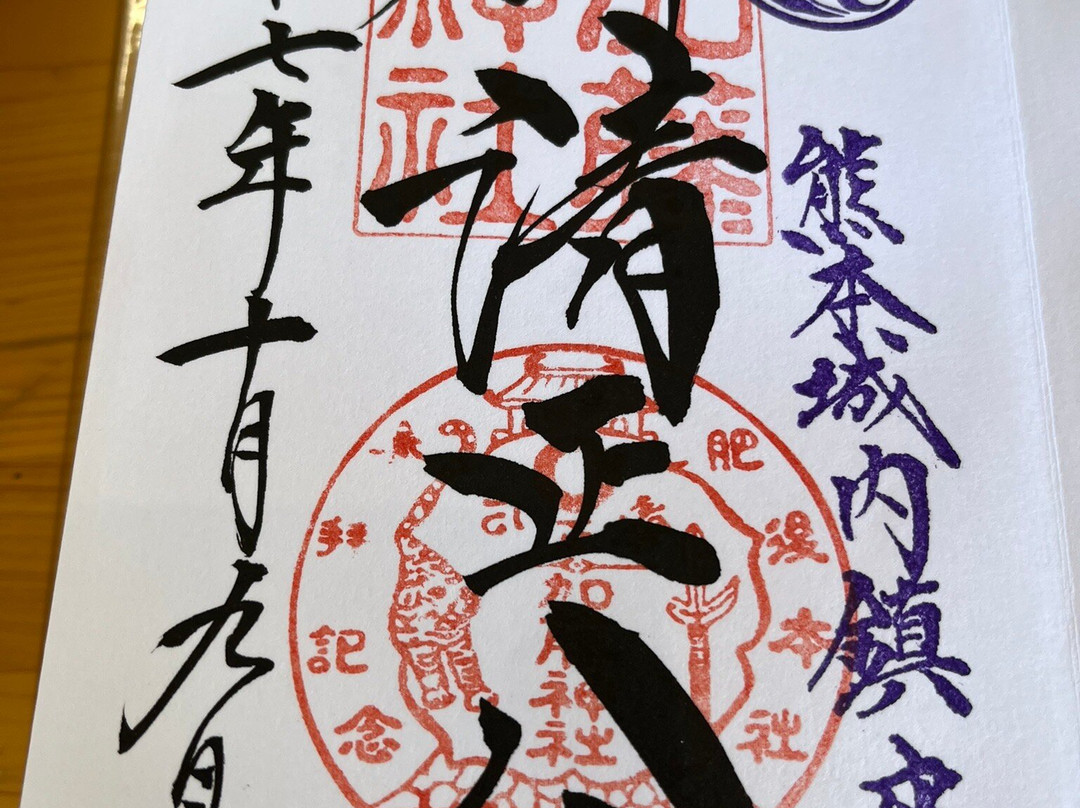 熊本城内鎮
加藤
神社
清正公
肥後本社
拝記念
加藤神社
七年十月九日